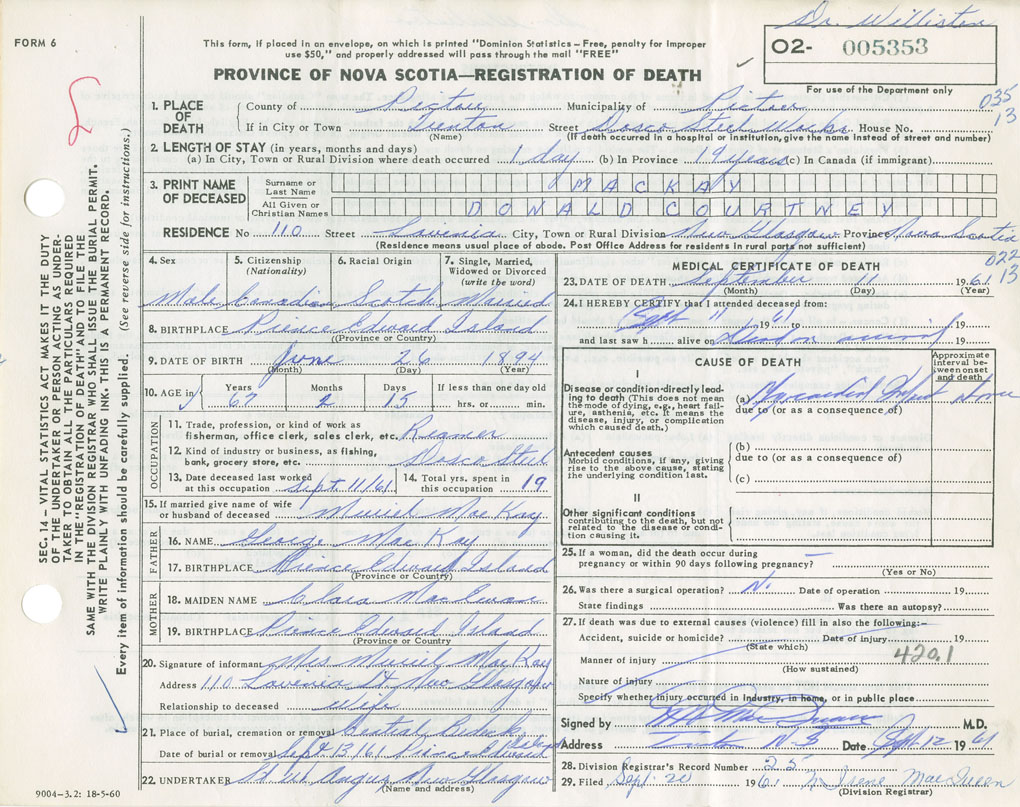 Dr. Williston
FORM 6
This form, if placed in an envelope, on which is printed "Dominion Statistics – Free, penalty for improper
use $50," and properly addressed will pass through the mail "FREE"
O2- 005353
PROVINCE OF NOVA SCOTIA—REGISTRATION OF DEATH
For use of the Department only
035
13
1. PLACE OF DEATH
County of Pictou Municipality of Pictou
If in City or Town Trenton Street Dosco Steel Works House No.
(Name) (If death occurred in a hospital or institution, give the name instead of street and number)
2. LENGTH OF STAY (in years, months and days)
(a) In City, Town or Rural Division where death occurred 1 day (b) In Province 19 years (c) In Canada (if immigrant)
3. PRINT NAME OF DECEASED
Surname or Last Name MACKAY
All Given or Christian Names DONALD COURTNEY
RESIDENCE No 110 Street Lavinia City, Town or Rural Division New Glasgow Province Nova Scotia
(Residence means usual place of abode. Post Office Address for residents in rural parts not sufficient)
022
13
4. Sex
Male
5. Citizenship
(Nationality)
Canadian
6. Racial Origin
Scotch
7. Single, Married,
Widowed or Divorced
(write the word)
Married
8. BIRTHPLACE Prince Edward Island
(Province or Country)
9. DATE OF BIRTH June 26 1894
(Month) (Day) (Year)
10. AGE in
Years Months Days If less than one day old
67 2 15 hrs. or min.
OCCUPATION
11. Trade, profession, or kind of work as
fisherman, office clerk, sales clerk, etc. Reamer
12. Kind of industry or business, as fishing,
bank, grocery store, etc. Dosco Steel
13. Date deceased last worked
at this occupation Sept. 11/61
14. Total yrs. spent in
this occupation 19
15. If married give name of wife
or husband of deceased Muriel MacKay
FATHER
16. NAME George MacKay
17. BIRTHPLACE Prince Edward Island
(Province or Country)
MOTHER
18. MAIDEN NAME Clara MacEwan
19. BIRTHPLACE Prince Edward Island
(Province or Country)
20. Signature of informant Mrs Muriel MacKay
Address 110 Lavinia St New Glasgow
Relationship to deceased wife
21. Place of burial, cremation or removal Central Bedeck
Date of burial or removal Sept 13/61 Prince Edward Island
22. UNDERTAKER H. W. Angus New Glasgow
(Name and address)
MEDICAL CERTIFICATE OF DEATH
23. DATE OF DEATH September 11 1961
(Month) (Day) (Year)
24. I HEREBY CERTIFY that I attended deceased from:
Sept 11 1961 to 19
and last saw h alive on 19
CAUSE OF DEATH
Approximate
interval be-
tween onset
and death
I
Disease or condition directly lead-
ing to death (This does not mean
the mode of dying, e.g., heart fail-
ure, asthenia, etc. It means the
disease, injury, or complication
which caused death.)
(a) Myocardial Infarct
due to (or as a consequence of)
Antecedent causes
Morbid conditions, if any, giving
rise to the above cause, stating
the underlying condition last.
(b)
due to (or as a consequence of)
(c)
II
Other significant conditions
contributing to the death, but not
related to the disease or condi-
tion causing it.
25. If a woman, did the death occur during
pregnancy or within 90 days following pregnancy? —
(Yes or No)
26. Was there a surgical operation? No Date of operation 19
State findings Was there an autopsy?
27. If death was due to external causes (violence) fill in also the following:—
Accident, suicide or homicide? Date of injury 19
(State which)
420.1
Manner of injury
(How sustained)
Nature of injury
Specify whether injury occurred in industry, in home, or in public place
Signed by M.D.
Address Trenton N.S Date Sept 12 1961
28. Division Registrar's Record Number 25
29. Filed Sept. 20 1961 Irene MacQueen
(Division Registrar)
SEC. 14 – VITAL STATISTICS ACT MAKES IT THE DUTY
OF THE UNDERTAKER OR PERSON ACTING AS UNDER-
TAKER TO OBTAIN ALL THE PARTICULARS REQUIRED
IN THE "REGISTRATION OF DEATH" AND TO FILE THE
SAME WITH THE DIVISION REGISTRAR WHO SHALL ISSUE THE BURIAL PERMIT.
WRITE PLAINLY WITH UNFADING INK. THIS IS A PERMANENT RECORD.
Every item of information should be carefully supplied. (See reverse side for instructions.)
9004–3.2: 18-5-60